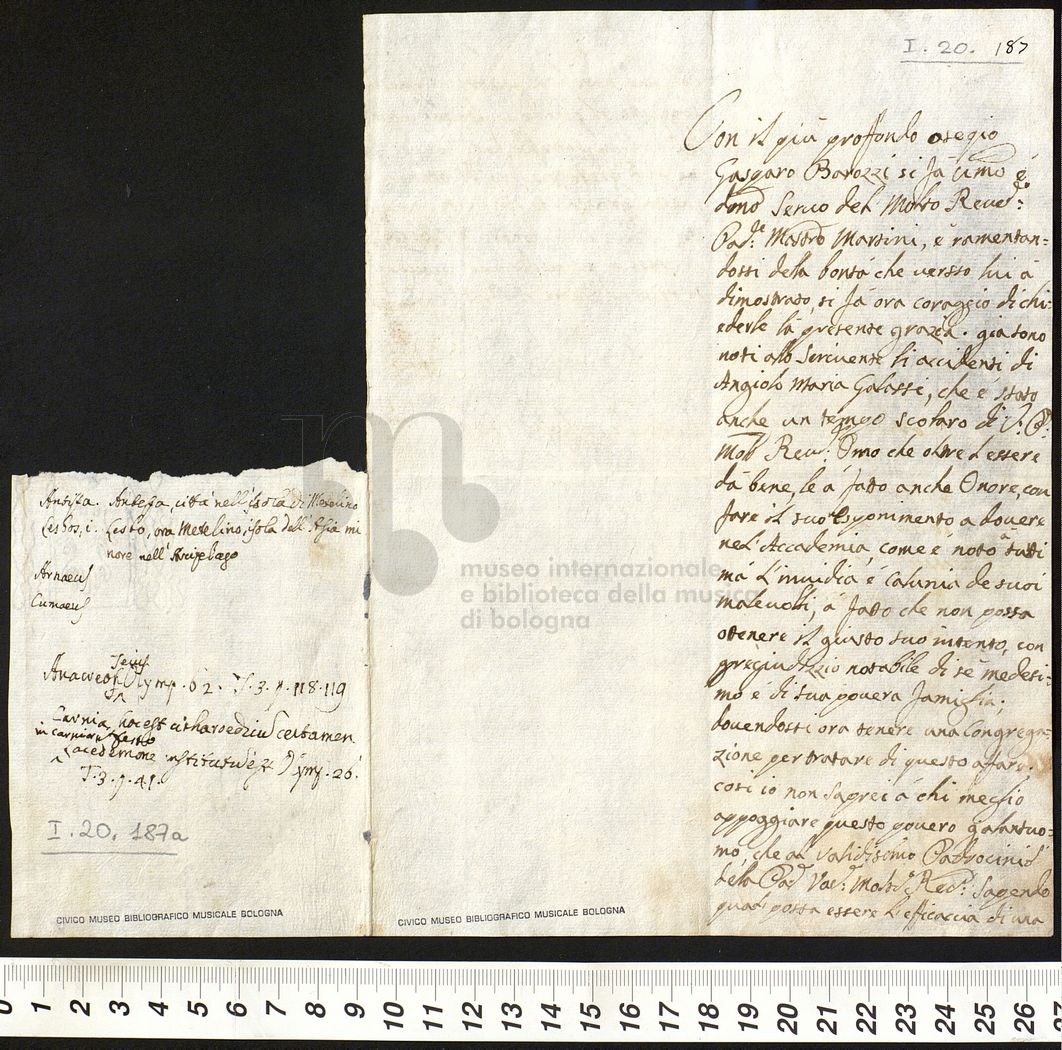 I. 20. 187
Con il più proffondo osegio
Gasparo Barozzi si fà umo é
dmo Servo del Molto Revdo:
Pade: Mastro Martini, e ramentan=
dossi della bontà che versso lui à
dimostrato, si fà ora coraggio di chi=
ederle là presente grazia. già sono
noti allo Scrivente li accidenti di
Angiolo Maria Galassi, che e' stato
anche un tempo scolaro di V. P.
Molt Rev: Omo che oltre l'essere
dà bene, le à fatto anche Onore, con
fare il suo Esponimento a dovere
nel'Accademia, come e' noto à tutti
mà l'invidia, e' Calunia de suoi
malevoli, à fatto che non possa
ottenere il giusto suo intento, con
pregiudizzio notabile di sé medesi=
mo e' di sua povera famiglia;
dovendossi ora tenere una Congrega=
zione per tratare di questo affare.
cosi io non saprei à chi meglio
appoggiare questo povero galantuo=
mo, che al validissimo Padrocinio
dela Pad Vos: Molt: Red: sapendo
qual possa essere l'efficaccia di una
Antissa. Antessa, città nell'isola di Metelino
Lesbos, i. Lesbo, ora Metelino, isola dell'Asia mi
nore nell'Arcipelago
Arnaeus
Cumaeus
Teius
Anacreon Olymp. 62. T. 3. p. 118. 119
Carnia, hoc est citharoedicum certamen
in Carniorum festo
Lacedemone institutum est Olymp. 26.
T. 3. p. 41.
I. 20. 187a
CIVICO MUSEO BIBLIOGRAFICO MUSICALE BOLOGNA
CIVICO MUSEO BIBLIOGRAFICO MUSICALE BOLOGNA
museo internazionale
e biblioteca della musica
di bologna
0 1 2 3 4 5 6 7 8 9 10 11 12 13 14 15 16 17 18 19 20 21 22 23 24 25 26 27